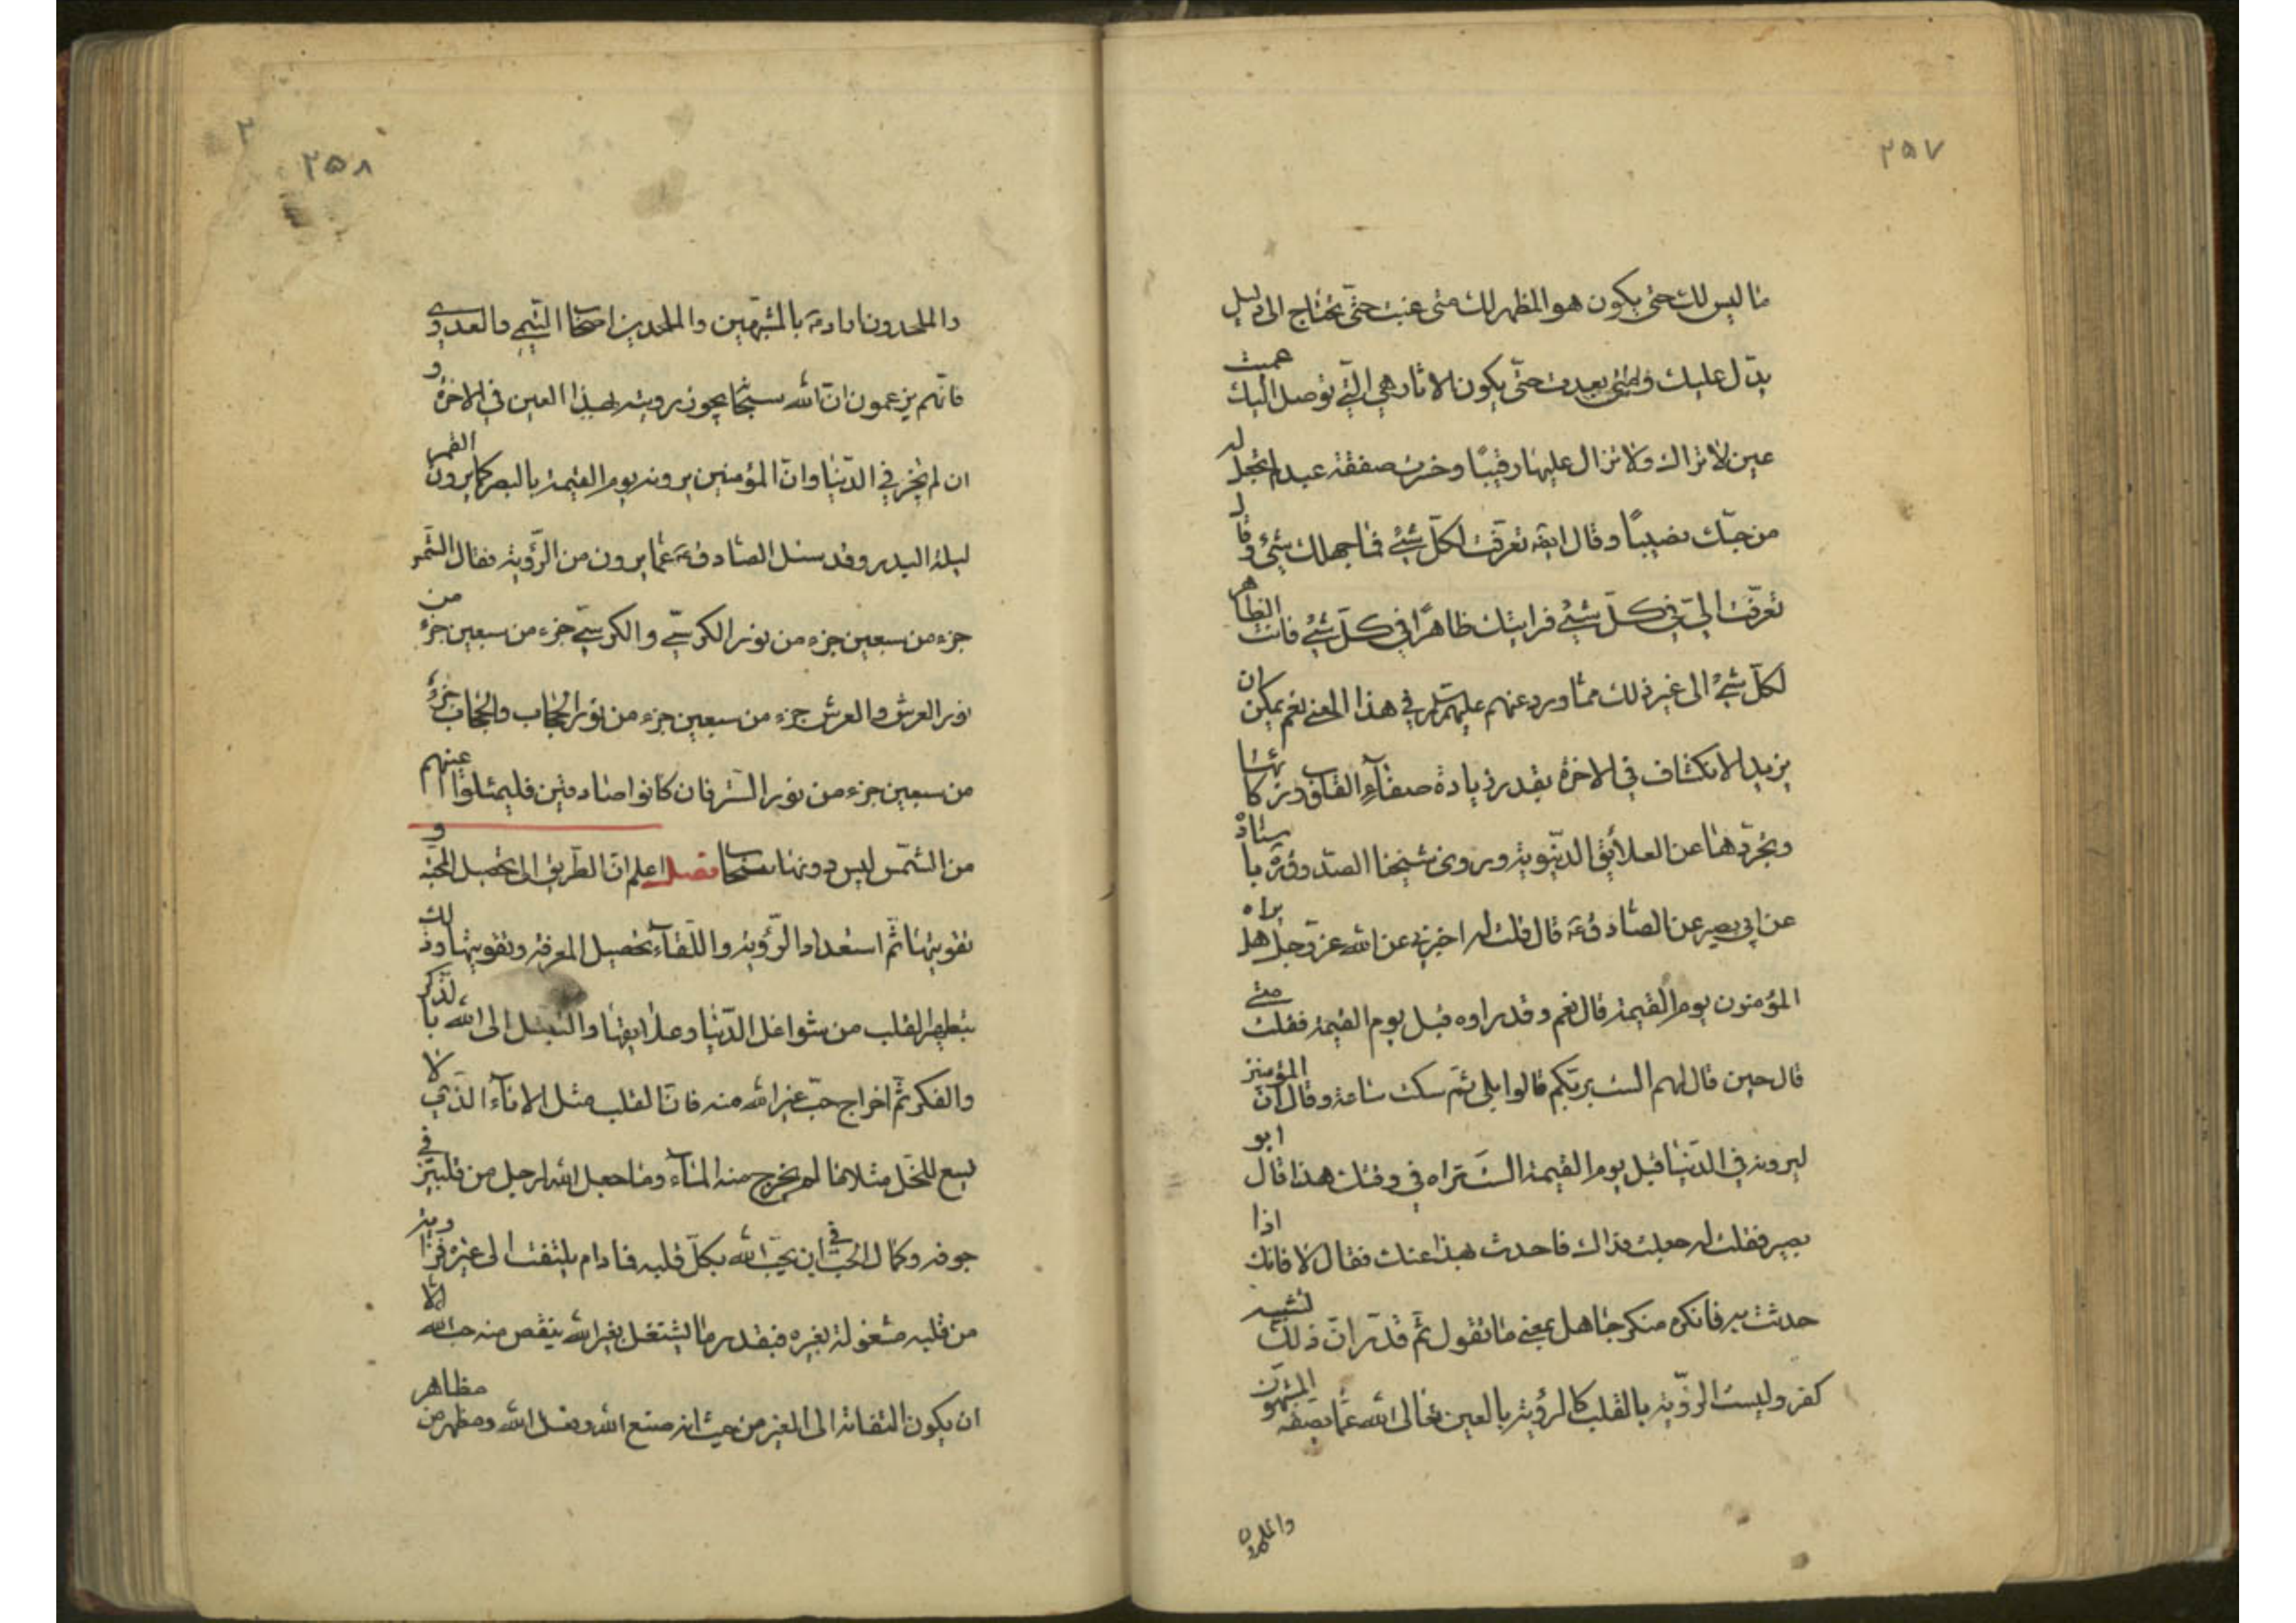 ۲۵۷
ما ليس لك حتى يكون هو المظهر لك متى غبت حتى تحتاج الى دليل
يدل عليك ومتى بعدت حتى يكون الاثار هي التي توصل اليك عميت
عين لا تراك ولا تزال عليها رقيبًا وخرت صفقة عبد لم تجعل له
من حبك نصيبًا وقال ايضه تعرفت لكل شيء فما جهلك شيء وقال
تعرفت الي في كل شيء فرايتك ظاهرًا في كل شيء فانت الظاهر
لكل شيء الى غير ذلك مما ورد عنهم عليهم السلم في هذا المعنى نعم يمكن ان
يزيد الانكشاف في الاخرة بقدر زيادة صفاء القلوب وزكائها
وتجردها عن العلائق الدنيوية وروى شيخنا الصدوق ره باسناده
عن ابي بصير عن الصادق ع قال قلت له اخبرني عن الله عز وجل هل يراه
المؤمنون يوم القيمة قال نعم وقد راوه قبل يوم القيمة فقلت متى
قال حين قال لهم الست بربكم قالوا بلى ثم سكت ساعة وقال ان المؤمنين
ليرونه في الدنيا قبل يوم القيمة الست تراه في وقتك هذا قال ابو
بصير فقلت له جعلت فداك فاحدث بهذا عنك فقال لا فانك اذا
حدثت به فانكره منكر جاهل بمعنى ما تقول ثم قدر ان ذلك تشبيه
كفر وليست الرؤية بالقلب كالرؤية بالعين تعالى الله عما يصفه المشبهون
والملحدون
۲۵۸
والملحدون اراد ع بالمشبهين والملحدين اصحاب التيمي والعدوي
فانهم يزعمون ان الله سبحانه يجوز رويته بهذا العين في الاخرة و
ان لم يجز في الدنيا وان المؤمنين يرونه يوم القيمة بالبصر كما يرون القمر
ليلة البدر وقد سئل الصادق ع عما يرون من الرؤية فقال الشمس
جزء من سبعين جزء من نور الكرسي والكرسي جزء من سبعين جزء من
نور العرش والعرش جزء من سبعين جزء من نور الحجاب والحجاب جزء
من سبعين جزء من نور الستر فان كانوا صادقين فليملئوا اعينهم
من الشمس ليس دونها سحاب فصل اعلم ان الطريق الى تحصيل المحبة و
تقويتها ثم استعداد الرؤية واللقاء تحصيل المعرفة وتقويتها وذلك
بتطهير القلب من شواغل الدنيا وعلايقها والتبتل الى الله بالذكر
والفكر ثم اخراج حب غير الله منه فان القلب مثل الاناء الذي لا
يسع للخل مثلا ما لم يخرج منه الماء وما جعل الله لرجل من قلبين في
جوفه وكمال الحب في ان يحب الله بكل قلبه فما دام يلتفت الى غيره فزاوية
من قلبه مشغولة بغيره فبقدر ما يشتغل بغير الله ينقص منه حب الله الا
ان يكون التفاته الى الغير من حيث انه صنع الله وفعل الله ومظهر من مظاهر